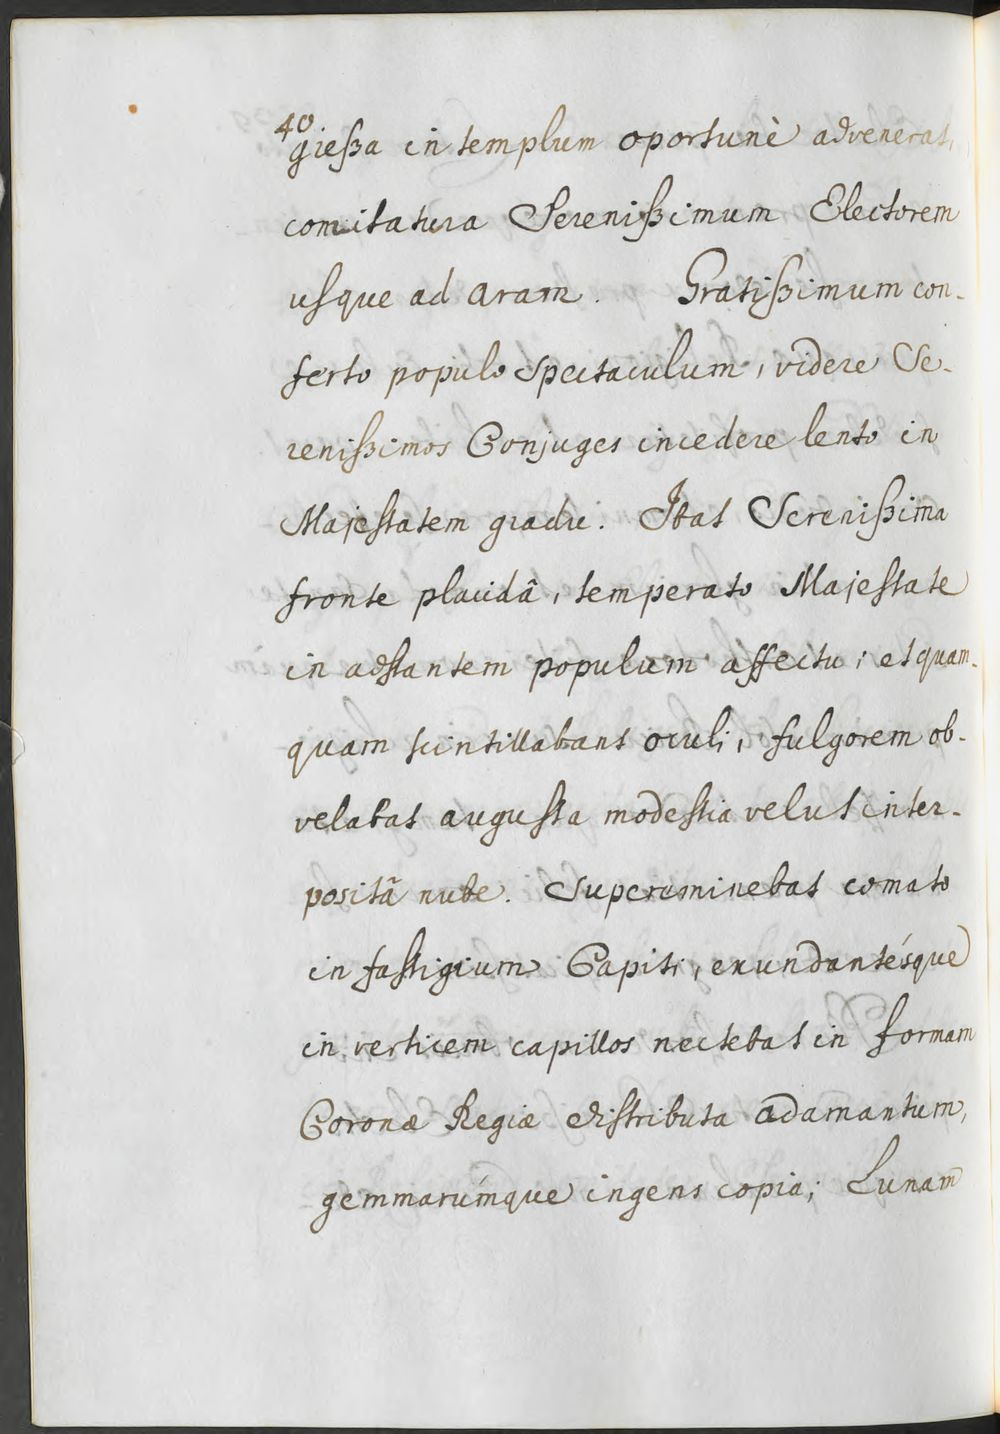 40
gießa in templum oportunè advenerat,
comitatura Serenißimum Electorem
usque ad aram. Gratißimum con-
ferto populo spectaculum, videre Se-
renißimos Conjuges incedere lento in
Majestatem gradu. Ibat Serenißima
fronte placidâ, temperato Majestate
in adstantem populum affectu; et quam-
quam scintillabant oculi, fulgorem ob-
velabat augusta modestia velut inter-
positâ nube. Supereminebat comato
in fastigium Capiti, exundantésque
in verticem capillos nectebat in formam
Coronæ Regiæ distributa adamantum,
gemmarúmque ingens copia; Lunam